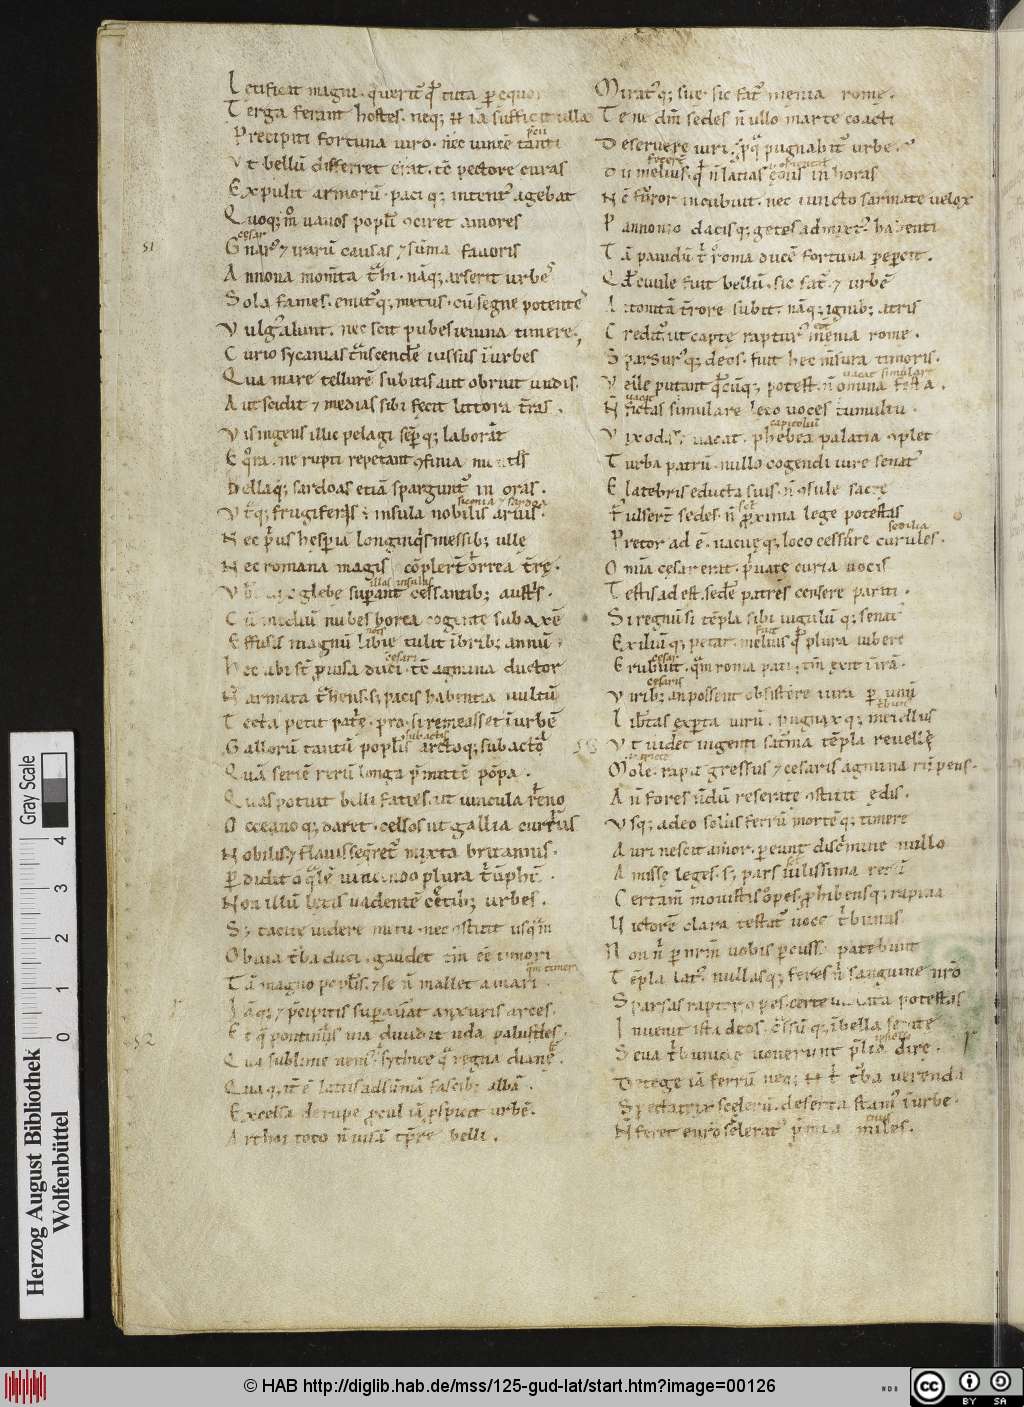 Letificat magni. q̄ uerit q̄ tuta p̄ equor
Terga ferant hostes. neq; iā sufficit ulla
Precipiti fortuna uiro. nec uincē tanti
Vt bellū differret erat. tē pectore curas
Expulit armorū. paciq; intent' agebat
Quoq; m̊ uanos popl̄i ciret amores
cesar
51
Gnar' ⁊ irarū causas ⁊ sūma fauoris
Annona mom̄ta t̄hi. nāq; asserit urbes
Sola fames. emitq; metus. cū segne potentes
Vulg' alunt. nec scit pubes ieiuna timere.
Curio sycanias t̄nscende iussus ī urbes
Qua mare tellurē subitis aut obruit undis.
Aut scidit ⁊ medias sibi fecit littora t̄ras.
Vis ingens illic pelagi sēp q; laborāt
Eq̊ra. ne rupti repetant ꝯfinia
Bellaq; sardoas etiā spargunt' in oras.
siconia ⁊ sardoa
Vt q; frugiferis ē insula nobilis aruis.
Nec p̄us hesperiā longinq̄s messib; ulle
Nec romana magis cōplert horrea t̄re.
illas insulas
glebe supant cessantib; austris.
Cū mediū nubes borea cogente sub axē
Effusis magnū libie tulit ībrib; annū
cesari
Hec ubi st̄ p̄uisa duci. tc̄ agmina uictor
Nī armata t̄hens. s; pacis habentia uultū
Tecta petit pat̄e. pro. si remeasset ī urbē
subactis
Gallorū tantū popl̄is arctoq; subacto
Quā seriē rerū longa p̄mittē pōpa.
Quas potuit belli facies. ut uincula reno
Occeanoq; daret. celsos ut gallia currus
Nobilis ⁊ flauis seq̄ret' mixta britannis.
Perdidit o q̄le uincendo plura t̄ūphū.
Non illū letis uadentē cetib; urbes.
S; tacite uidere metu. nec ꝯstitit usq̄m
Obuia t̄ba duci. gaudet tm̄ ēē timori
qm̄ timeri
Tā magno popl̄is. ⁊ se n̄ mallet amari.
Iāq; ⁊ p̄cipitis supauat anxuris arces.
52
Et q̄ pontinas uia diuidit uda paludes.
Qua sublime nem' scythice q̄ regna diane.
Quaq; it̄ ē latiis ad sūmā fascib; albā.
Excelsa de rupe procul iā ꝯspicit urbē.
Arthoi toto n̄ uisā tp̄re belli.
Mirat'q; sue sic fat' menia rome.
Te ne dm̄ sedes n̄ ullo marte coacti
Deseruere uiri. pq̄ pugnabit' urbe.
Dii melius. q̄ n̄ latias eous in horas
Nc̄ furor incubuit. nec iuncto sarmate uelox
Pannonio dacisq; getes admixt' habenti
Tā pauidū t̄ roma ducē fortuna pepcit.
Qd̄ ciuile fuit bellū. sic fat' ⁊ urbē
Attonitā t̄rore subit. nāq; ignib; atris
Credit' ut capte raptur' menia rome.
Sparsur'q; deos. fuit hec m̄sura timoris.
uacat simulare
Velle putant q̄cūq; potest. n̄ omina festa.
uacat
N̄ fictas simulare leto uoces tumultu.
capitoliū
Vix odisse uacat. phebea palatia ꝯplet
Turba patrū. nullo cogendi iure senat'
E latebris educta suis. n̄ ꝯsule sacre
Fulsert sedes. n̄ p̄xima lege potestas
sedilia
Pretor ad ē. uacueq; loco cessure curules.
Omia cesar erit. p̄uate curia uocis
Testis adest. sedt̄ patres censere parati.
Si regnū si tēpla sibi iugulū q; senat'
Exiliūq; petat. melius q̄ plura iubere
cesar
Erubuit. q̄m roma pati. tm̄ exit ī irā.
cesaris
Virib; an possent obsistere iura p unū
Libtas expta uirū. pugnaxq; metellus
Vt uidet ingenti sat̄nia tēpla reuelle
Mole. rapit gressus ⁊ cesaris agmina rūpens.
An̄ fores nōdū reserate ꝯstitit edis.
Vsq; adeo solus ferrū mortēq; timere
Auri nescit amor. pereunt discrimine nullo
Amisse leges. s; pars uilissima rerū
Certam̄ mouistis opes. prohibensq; rapina
Victorē clara testat' uoce t̄bunus
Non n̄ p nr̄m uobis percussa patebunt
Tēpla lat'. nullasq; feres n̄ sanguine nr̄o
Sparsas raptor opes. certe uiolata potestas
Inuenit ista deos. crassūq; ī bella secute
Seua t̄bunicie uouerunt p̄lia dire.
Detege iā ferrū neq; t̄ t̄ba uerenda
Spectatrix scelerū. deserta stam' ī urbe.
Nferet euro scelerat' p̄mia miles.
Herzog August Bibliothek
Wolfenbüttel
Gray Scale
0 1 2 3 4
© HAB http://diglib.hab.de/mss/125-gud-lat/start.htm?image=00126
cc BY SA